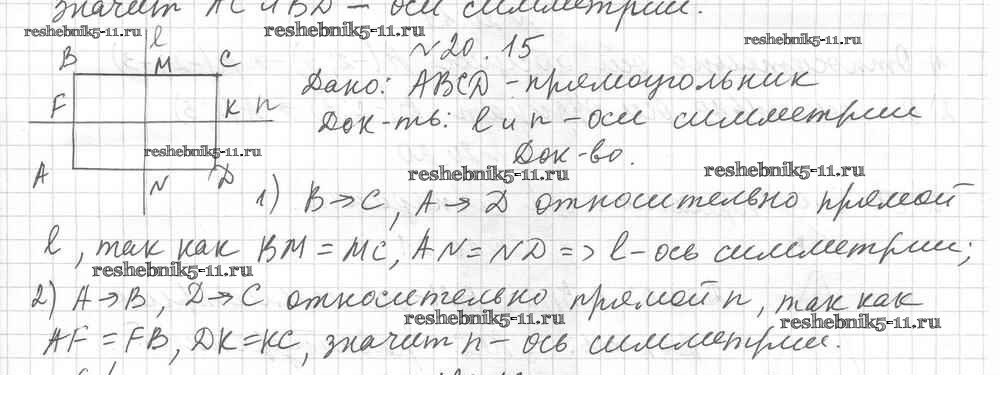 значит AC и BD – оси симметрии.
reshebnik5-11.ru
reshebnik5-11.ru
reshebnik5-11.ru
№20.15
B M C l
Дано: ABCD – прямоугольник
F K n
Док-ть: l и n – оси симметрии
reshebnik5-11.ru
Док-во.
A N D
reshebnik5-11.ru
reshebnik5-11.ru
1) B→C, A→D относительно прямой
l, так как BM = MC, AN = ND => l – ось симметрии;
reshebnik5-11.ru
2) A→B, D→C относительно прямой n, так как
reshebnik5-11.ru
reshebnik5-11.ru
AF = FB, DK = KC, значит n – ось симметрии.